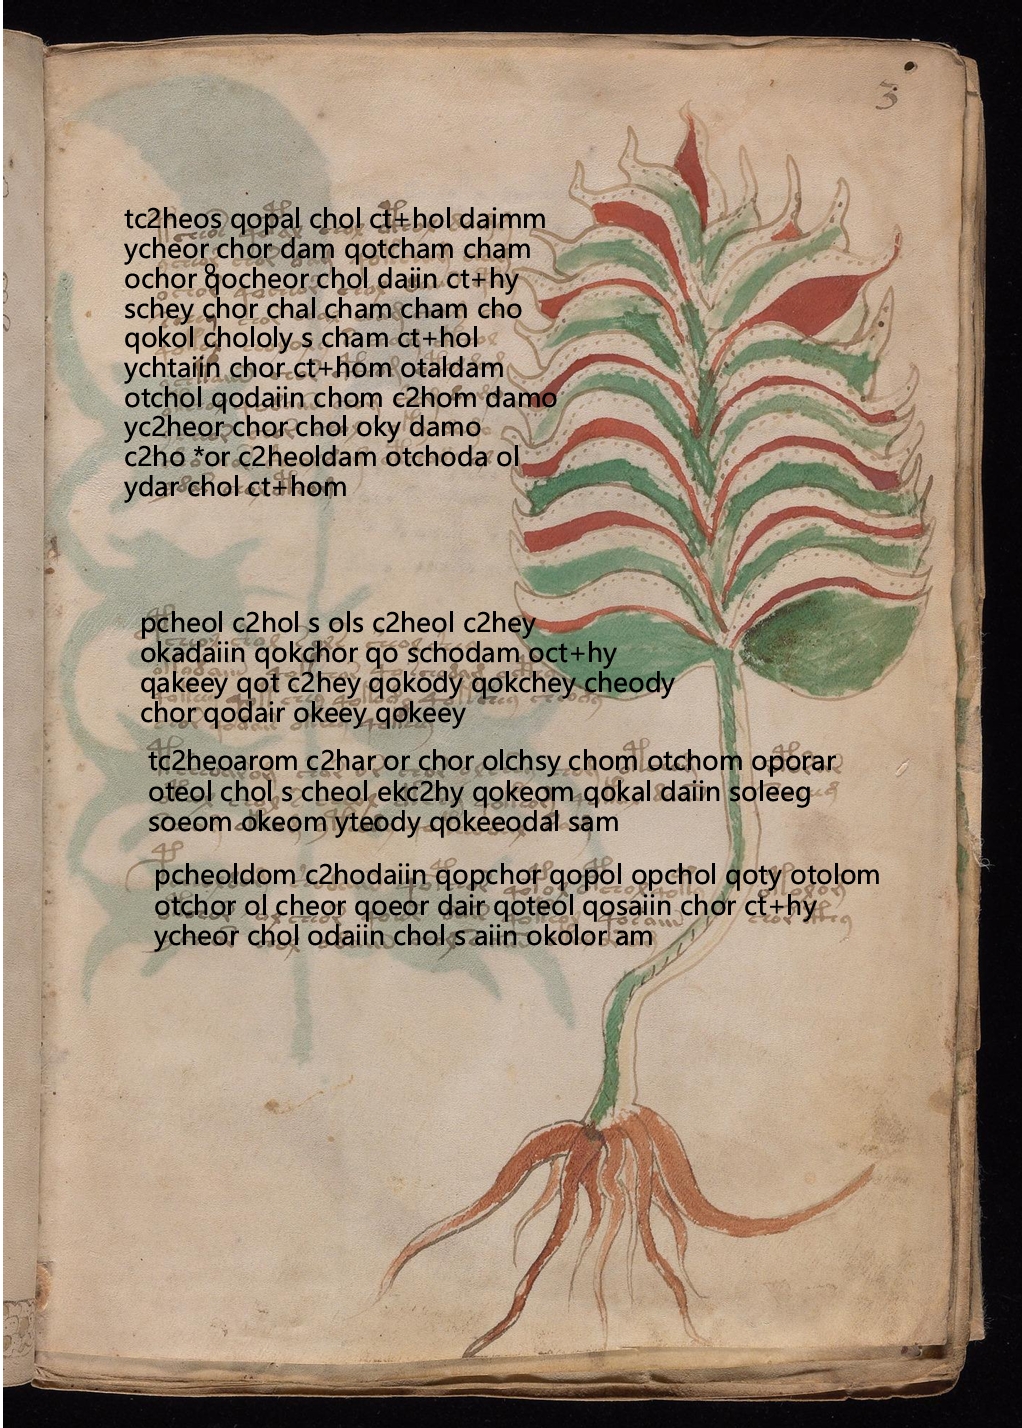 3
tc2heos qopal chol ct+hol daimm
ycheor chor dam qotcham cham
ochor qocheor chol daiin ct+hy
schey chor chal cham cham cho
qokol chololy s cham ct+hol
ychtaiin chor ct+hom otaldam
otchol qodaiin chom c2hom damo
yc2heor chor chol oky damo
c2ho *or c2heoldam otchoda ol
ydar chol ct+hom
pcheol c2hol s ols c2heol c2hey
okadaiin qokchor qo schodam oct+hy
qakeey qot c2hey qokody qokchey cheody
chor qodair okeey qokeey
tc2heoarom c2har or chor olchsy chom otchom oporar
oteol chol s cheol ekc2hy qokeom qokal daiin soleeg
soeom okeom yteody qokeeodal sam
pcheoldom c2hodaiin qopchor qopol opchol qoty otolom
otchor ol cheor qoeor dair qoteol qosaiin chor ct+hy
ycheor chol odaiin chol s aiin okolor am